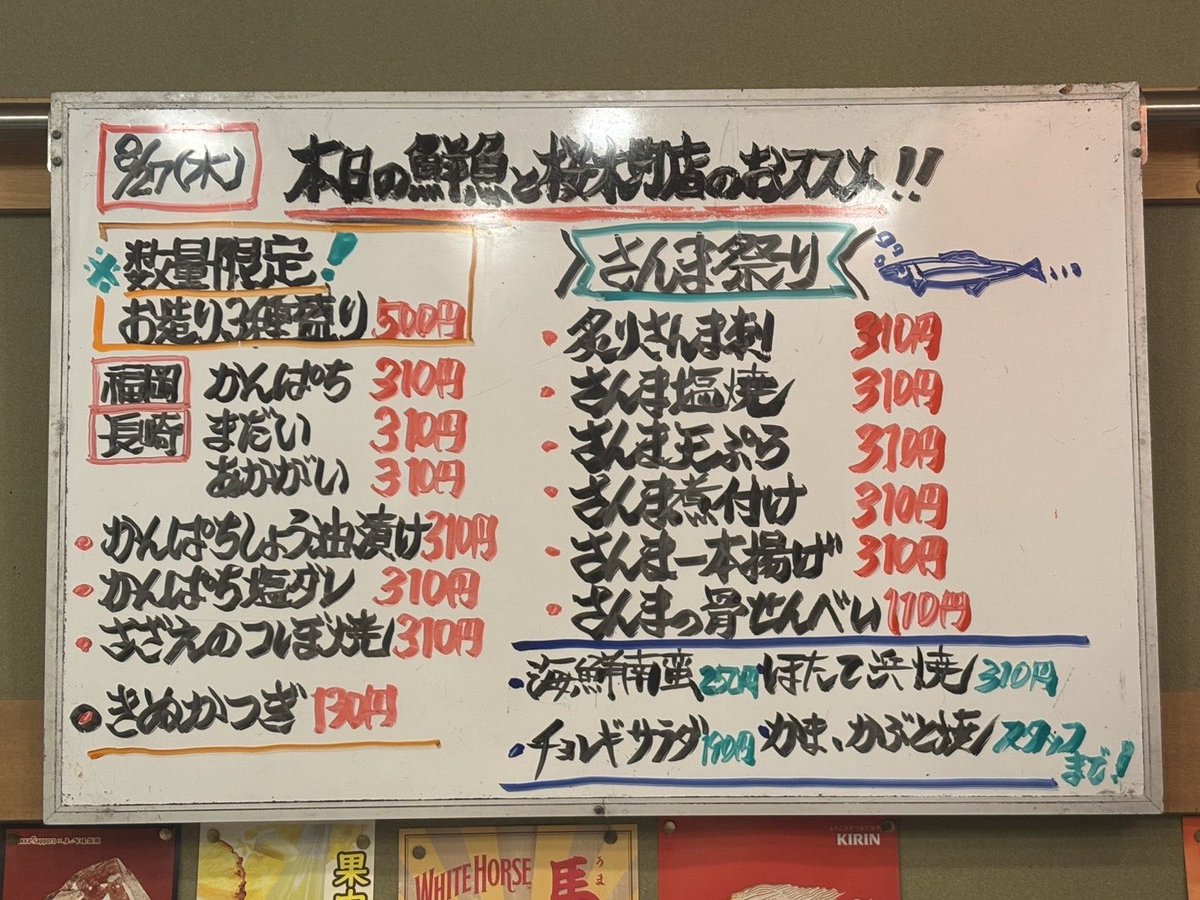 8/27(木) 本日の鮮魚と桜木町店のおススメ!!
※数量限定!
お造り3種盛り 500円
福岡 かんぱち 310円
長崎 まだい 310円
あかがい 310円
・かんぱちしょう油漬け 310円
・かんぱち塩ダレ 310円
・さざえのつぼ焼 310円
・きぬかつぎ 130円
さんま祭り
・炙りさんま刺 310円
・さんま塩焼 310円
・さんま天ぷら 310円
・さんま煮付け 310円
・さんま一本揚げ 310円
・さんまっ骨せんべい 110円
・海鮮南蛮 251円 ほたて浜焼 310円
・チョレギサラダ 190円 ・かま、かぶと焼 スタッフまで!
果
WHITE HORSE
うま
馬
KIRIN